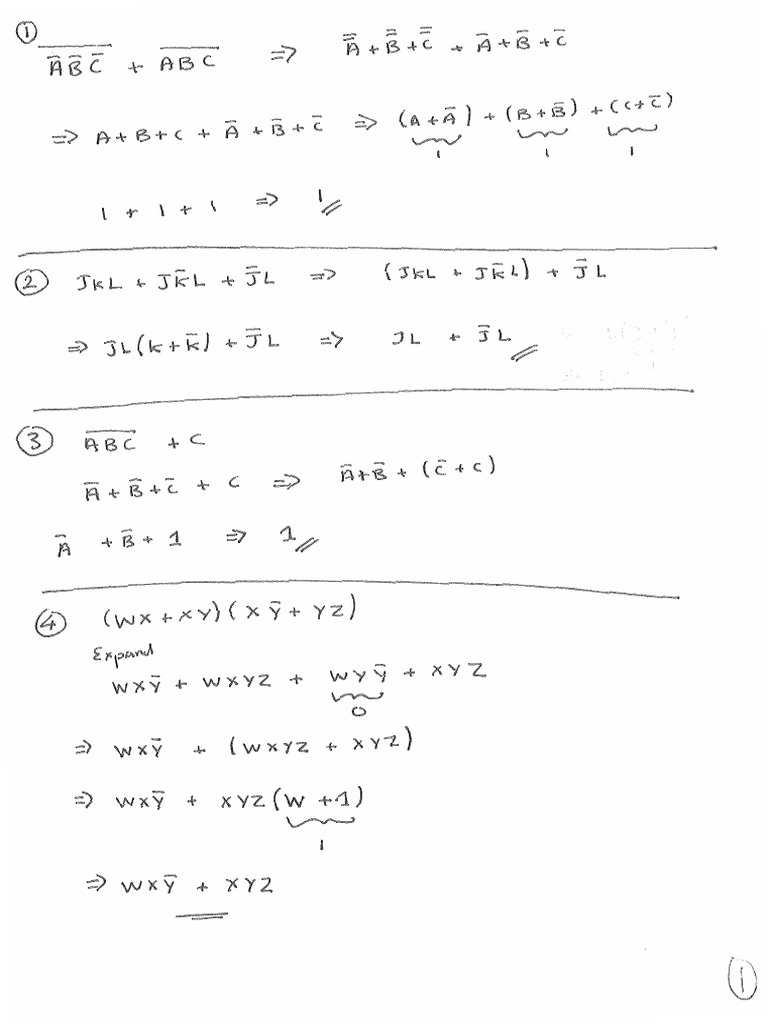 ① \overline{A̅B̅C̅} + \overline{ABC} ⇒ A̿ + B̿ + C̿ + A̅ + B̅ + C̅
⇒ A + B + C + A̅ + B̅ + C̅ ⇒ (A + A̅) + (B + B̅) + (C + C̅)
1 1 1
1 + 1 + 1 ⇒ 1
② JKL + JK̅L + J̅L ⇒ (JKL + JK̅L) + J̅L
⇒ JL(K + K̅) + J̅L ⇒ JL + J̅L
③ \overline{ABC} + C
A̅ + B̅ + C̅ + C ⇒ A̅ + B̅ + (C̅ + C)
A̅ + B̅ + 1 ⇒ 1
④ (WX + XY)(XY̅ + YZ)
Expand
WXY̅ + WXYZ + WYY̅ + XYZ
0
⇒ WXY̅ + (WXYZ + XYZ)
⇒ WXY̅ + XYZ(W + 1)
1
⇒ WXY̅ + XYZ
①